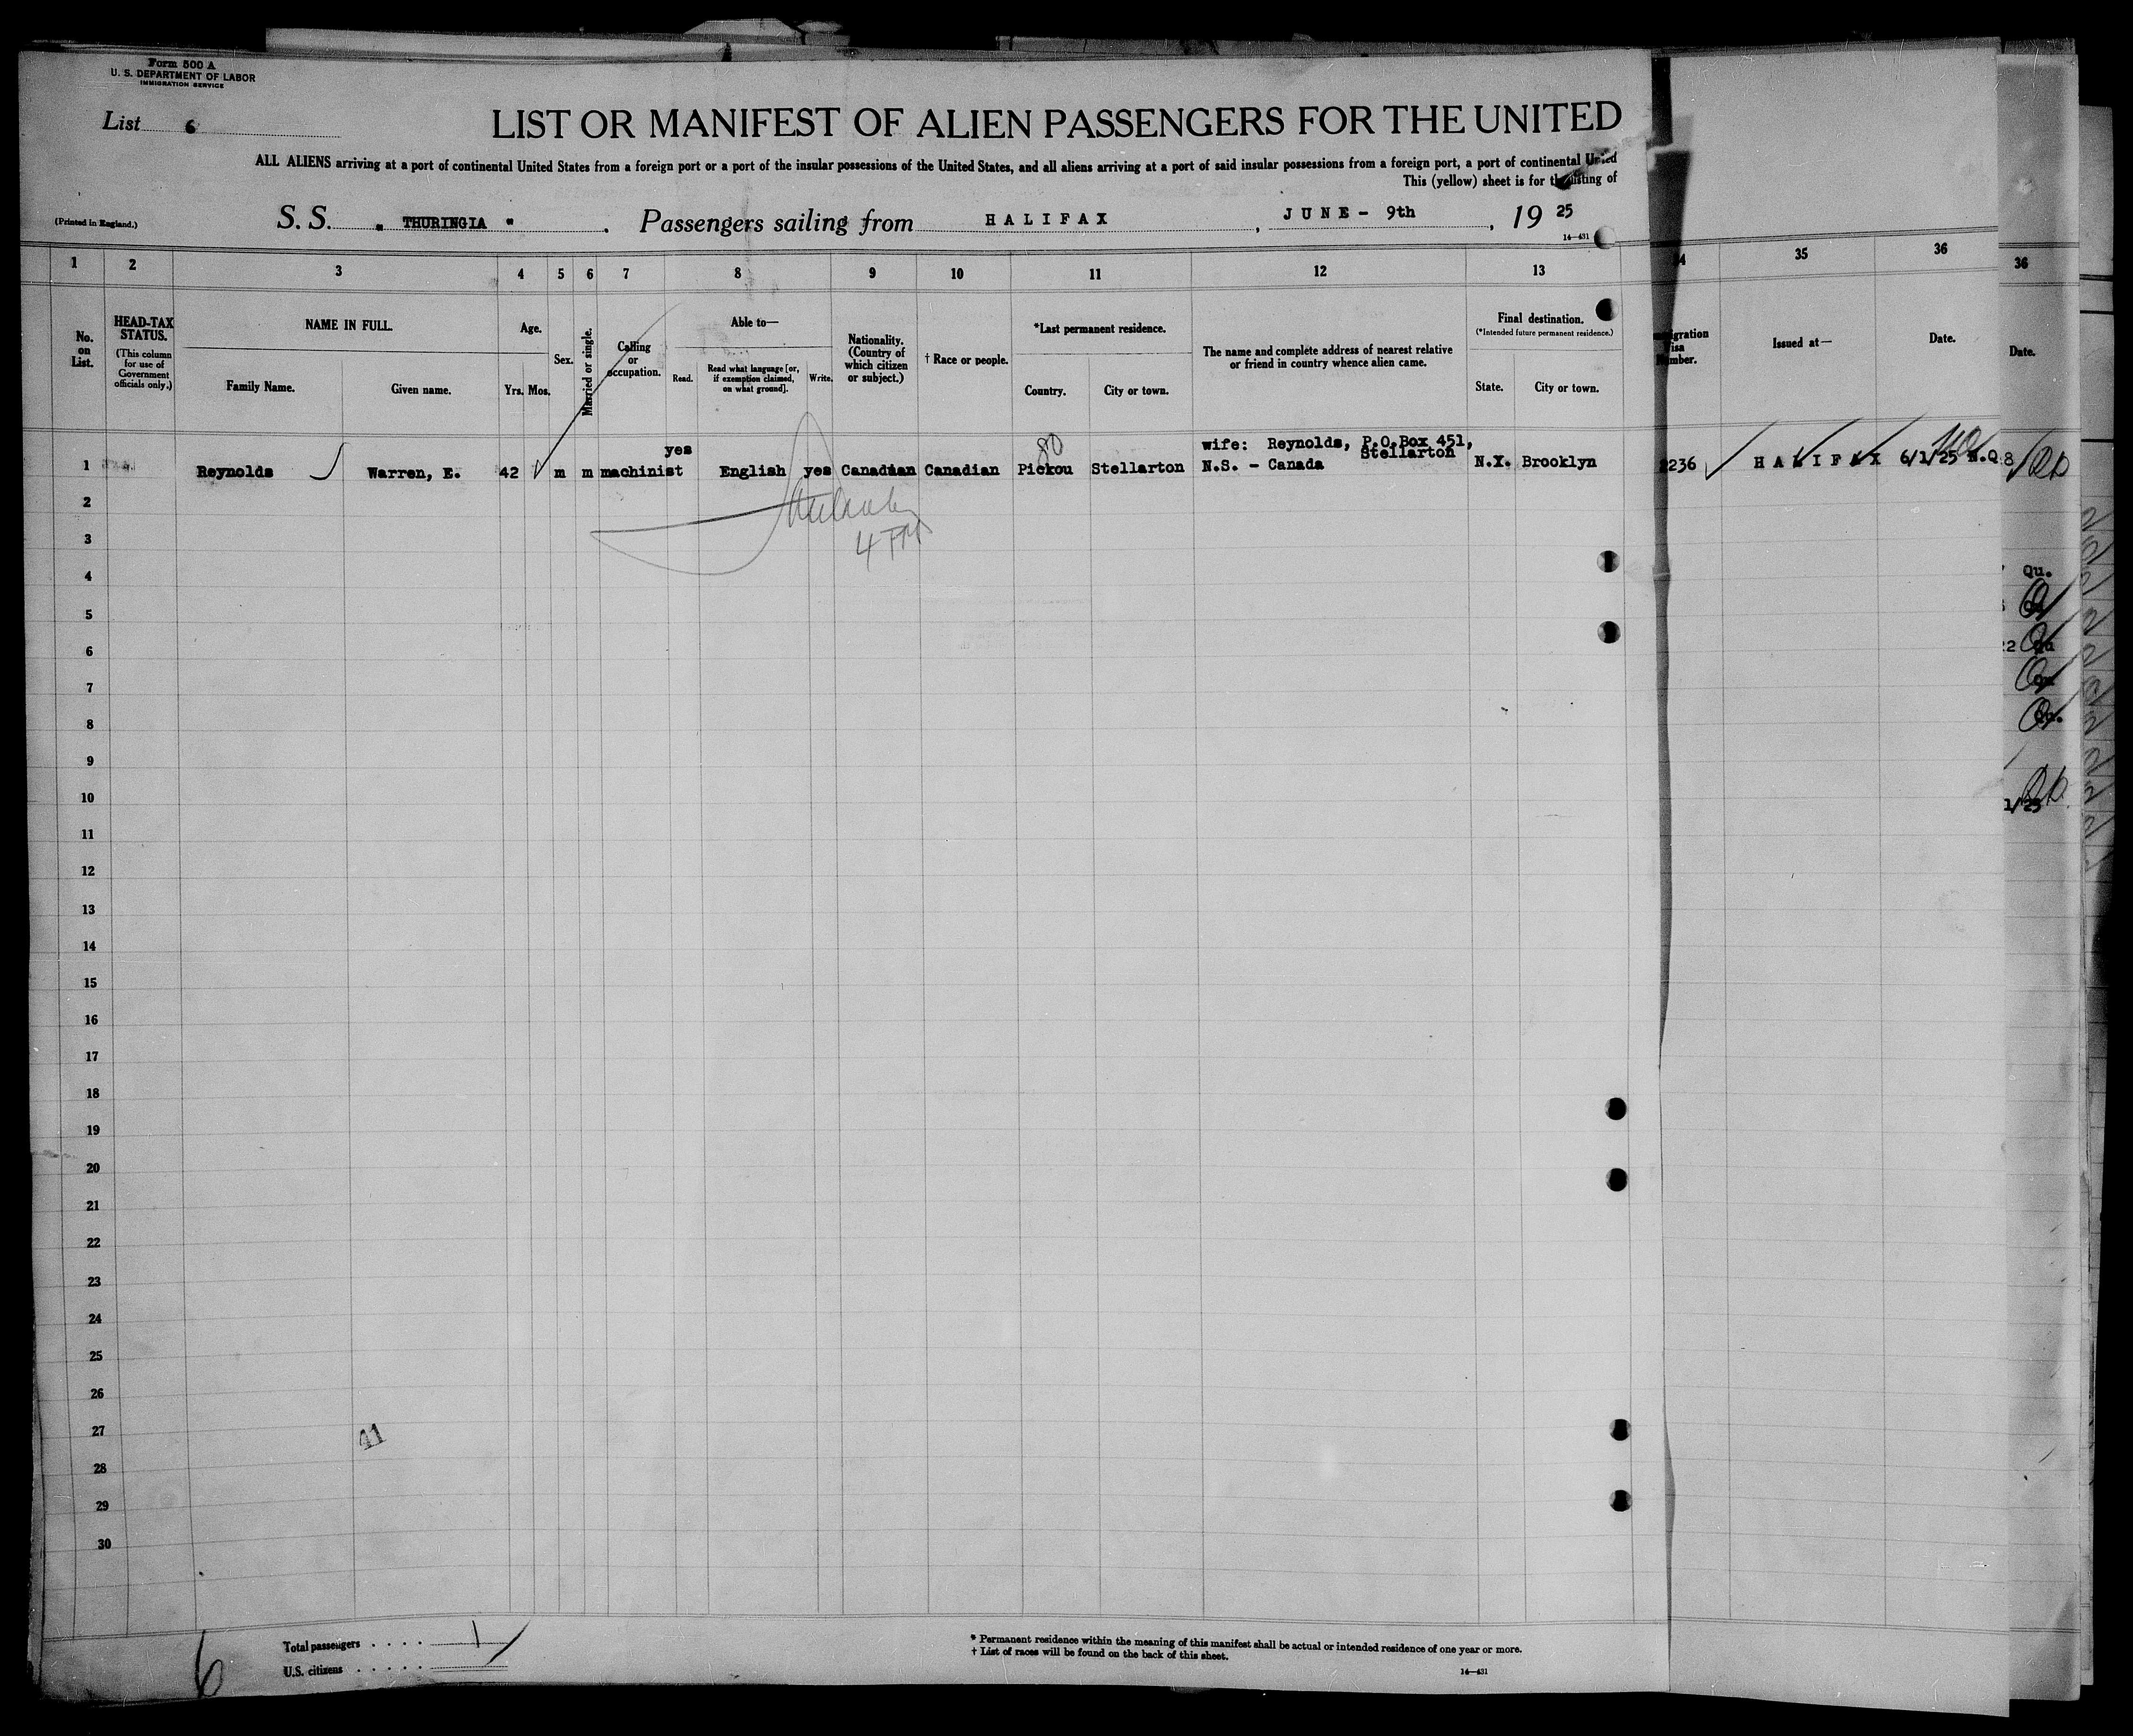 Form 500 A
U. S. DEPARTMENT OF LABOR
IMMIGRATION SERVICE
List 6
LIST OR MANIFEST OF ALIEN PASSENGERS FOR THE UNITED
ALL ALIENS arriving at a port of continental United States from a foreign port or a port of the insular possessions of the United States, and all aliens arriving at a port of said insular possessions from a foreign port, a port of continental United
This (yellow) sheet is for the listing of
(Printed in England.)
S. S. " THURINGIA " . Passengers sailing from HALIFAX , JUNE - 9th , 19 25
14—431
1 2 3 4 5 6 7 8 9 10 11 12 13 35 36 36
No. on List.
HEAD-TAX STATUS.
(This column for use of Government officials only.)
NAME IN FULL.
Family Name. Given name.
Age.
Yrs. Mos.
Sex.
Married or single.
Calling or occupation.
Able to—
Read. Read what language [or, if exemption claimed, on what ground]. Write.
Nationality. (Country of which citizen or subject.)
† Race or people.
*Last permanent residence.
Country. City or town.
The name and complete address of nearest relative or friend in country whence alien came.
Final destination.
(*Intended future permanent residence.)
State. City or town.
Issued at—
Date.
Date.
80
yes
wife: Reynolds, P.O.Box 451,
Stellarton
1 Reynolds Warren, E. 42 m m machinist English yes Canadian Canadian Pickou Stellarton N.S. - Canada N.Y. Brooklyn 236 HALIFAX 6/1/25 N.Q
2
3
4 Qu.
5
6
7
8
9
10
11
12
13
14
15
16
17
18
19
20
21
22
23
24
25
26
27
28
29
30
41
6
Total passengers . . . . 1
U.S. citizens . . . . .
* Permanent residence within the meaning of this manifest shall be actual or intended residence of one year or more.
† List of races will be found on the back of this sheet.
14—431